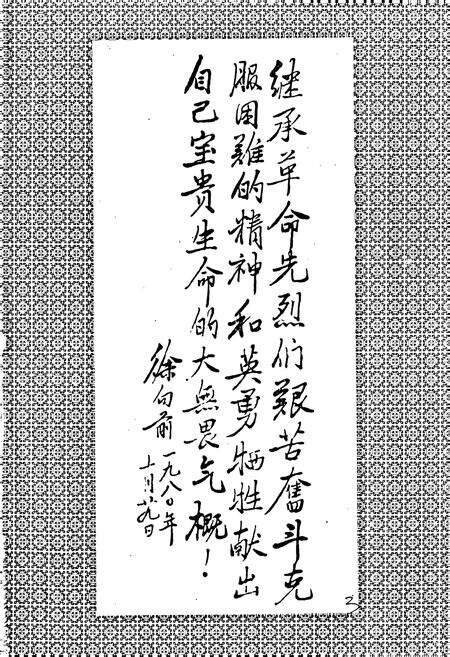 继承革命先烈们艰苦奋斗克
服困難的精神和英勇牺牲献出
自己宝貴生命的大無畏气概！
徐向前 一九八〇年